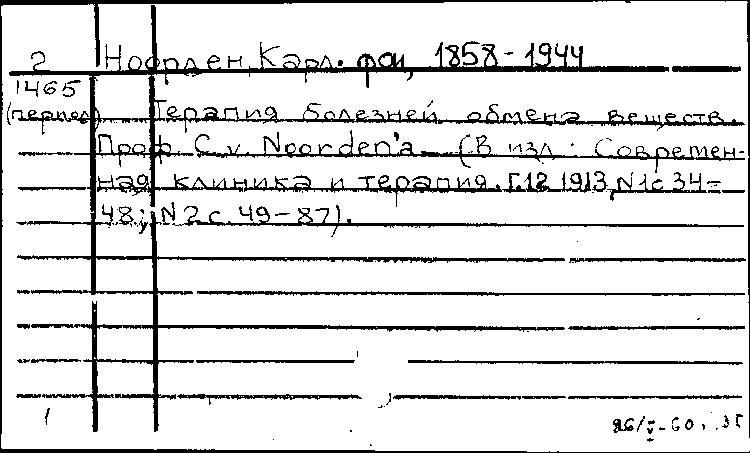 2 Ноорден, Карл. фон, 1858-1944
1465
(период) Терапия болезней обмена веществ.
Проф. C. v. Noorden'a. (В изд.: Современ-
ная клиника и терапия. Г.12 1913, N1 с 34-
48; N2 с. 49-87).
1